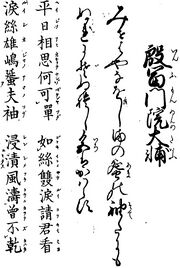 殷富門院大輔
みせはやなをしまの蜑の袖たにも
ぬれにそぬれし色はかはらす
平日相思何可單　如絲雙淚請君看
淚絲雄嶋蜑夫袖　浸漬風濤曾不乾